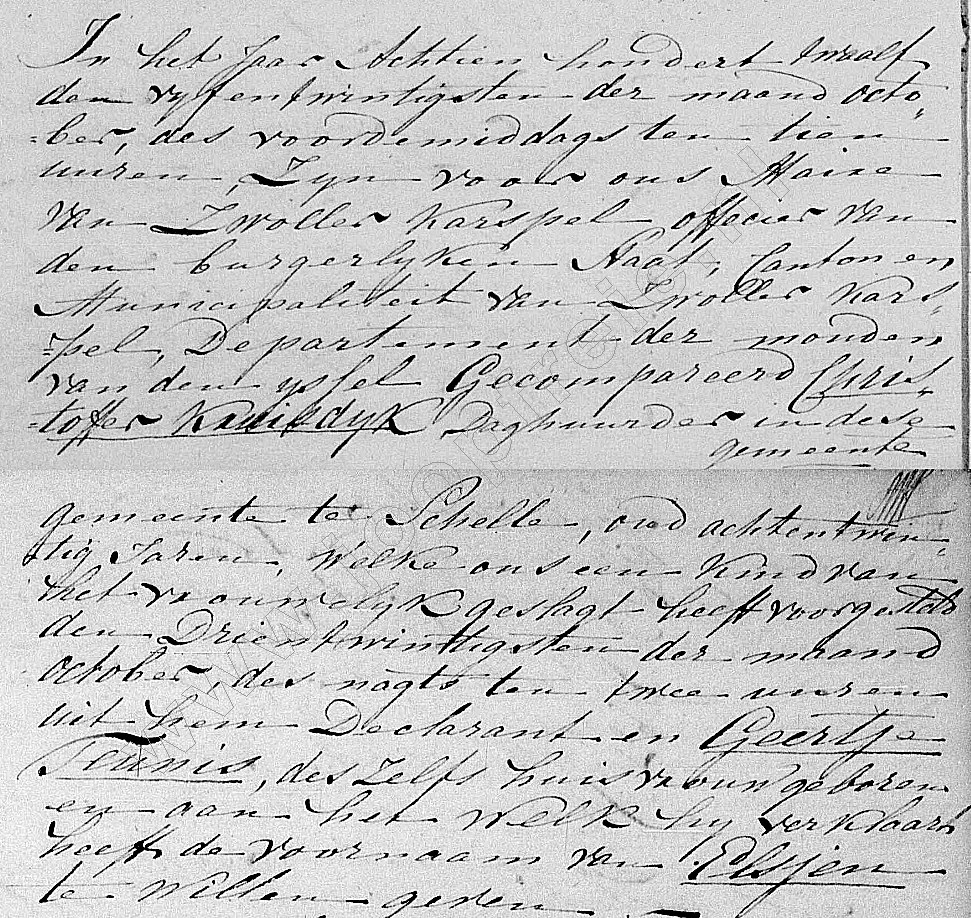 In het Jaar Achtien hondert twaalf
den vyfentwintigsten der maand octo-
=ber, des voordemiddags ten tien
uuren, Zyn voor ons Maire
van Zwoller Karspel officier van
den burgerlyken Staat, Canton en
Municipaliteit van Zwoller Kars-
=pel, Departement der monden
van den yssel Gecompareerd Chris-
=toffer Kruisdyk Daghuurder in dese
gemeente
gemeente te Schelle, oud achtentwin-
tig Jaren, Welke ons een Kind van
het vrouwelyk geslagt heeft voorgesteld
den Drientwintigsten der maand
october, des nagts ten twee uuren
uit hem Declarant en Geertje
Teunis, deszelfs huisvrouw geboren
en aan het Welk hy verklaard
heeft de voornaam van Elsjen
te Willen geven